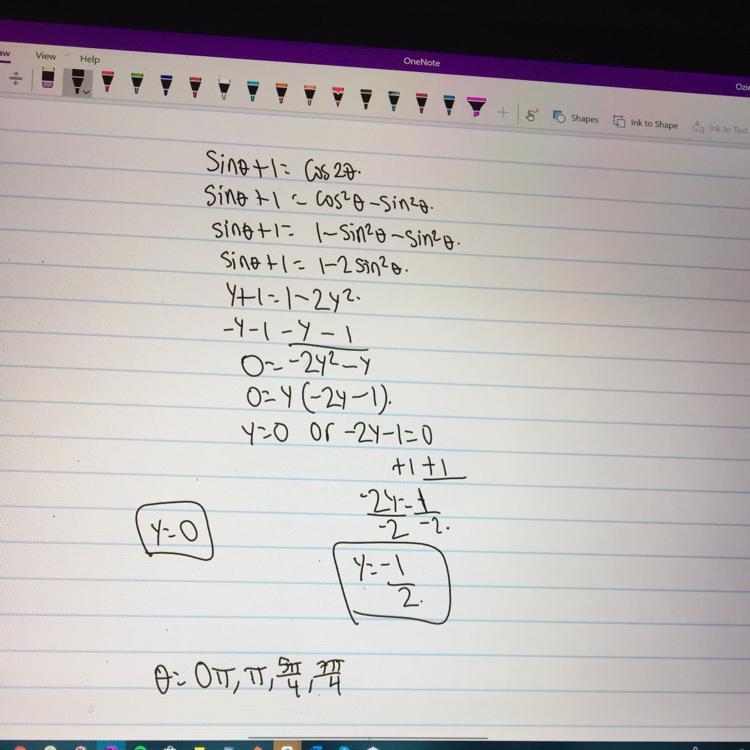 OneNote
aw View Help Ozie
Shapes Ink to Shape Ink to Text
Sinθ+1= Cos2θ.
Sinθ+1 = Cos²θ-Sin²θ.
sinθ+1= 1-Sin²θ-Sin²θ.
Sinθ+1= 1-2Sin²θ.
y+1=1-2y².
-y-1 -y-1
0=-2y²-y
0=y(-2y-1).
y=0 or -2y-1=0
+1 +1
-2y=1
-2 -2.
y=0
y=-1/2.
θ=0π, π, 5π/4, 7π/4